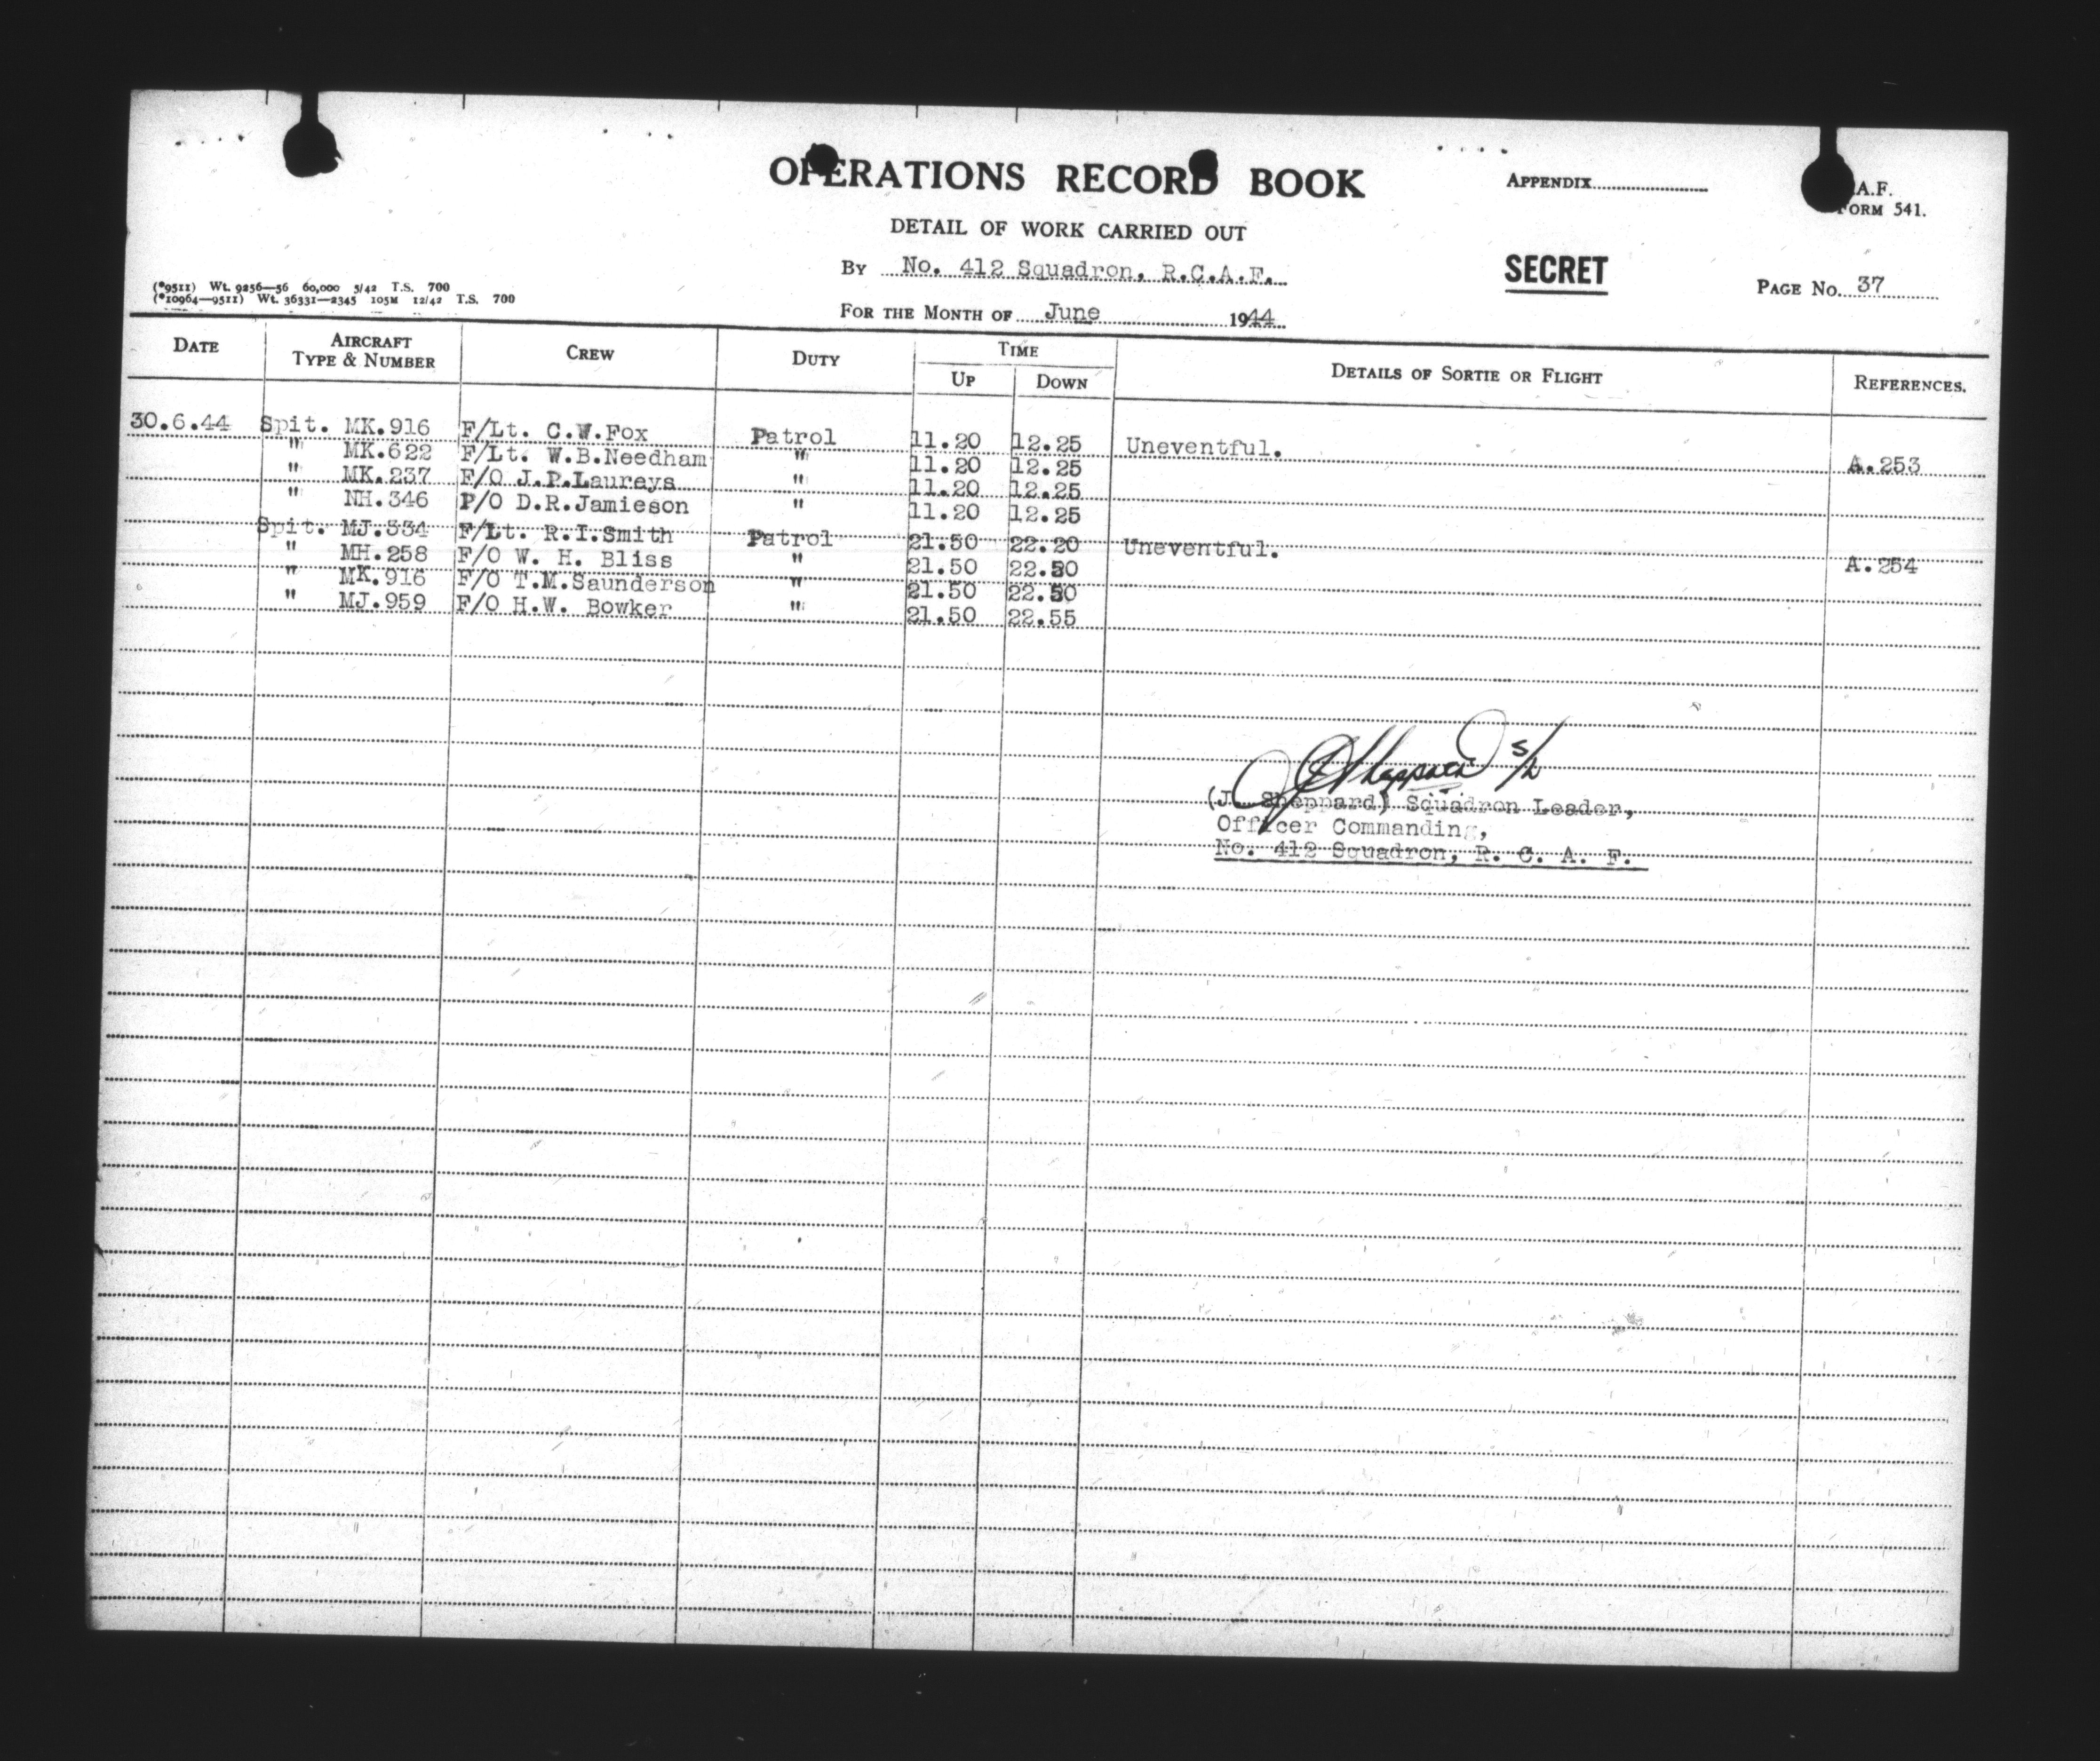 OPERATIONS RECORD BOOK
APPENDIX
A.F.
FORM 541.
DETAIL OF WORK CARRIED OUT
By No. 412 Squadron, R.C.A.F.
SECRET
PAGE No. 37
(*9511) Wt. 9256—56 60,000 5/42 T.S. 700
(*10964—9511) Wt. 36331—2345 105M 12/42 T.S. 700
FOR THE MONTH OF June 1944
DATE AIRCRAFT TYPE & NUMBER CREW DUTY TIME UP DOWN DETAILS OF SORTIE OR FLIGHT REFERENCES.
30.6.44 Spit. MK.916 F/Lt. C.W.Fox Patrol 11.20 12.25 Uneventful. A.253
" MK.622 F/Lt. W.B.Needham " 11.20 12.25
" MK.237 F/O J.P.Laureys " 11.20 12.25
" NH.346 P/O D.R.Jamieson " 11.20 12.25
Spit. MJ.334 F/Lt. R.I.Smith Patrol 21.50 22.20 Uneventful. A.254
" MH.258 F/O W. H. Bliss " 21.50 22.50
" MK.916 F/O T.M.Saunderson " 21.50 22.50
" MJ.959 F/O H.W. Bowker " 21.50 22.55
Sheppard S/L
(J. Sheppard) Squadron Leader,
Officer Commanding,
No. 412 Squadron, R. C. A. F.